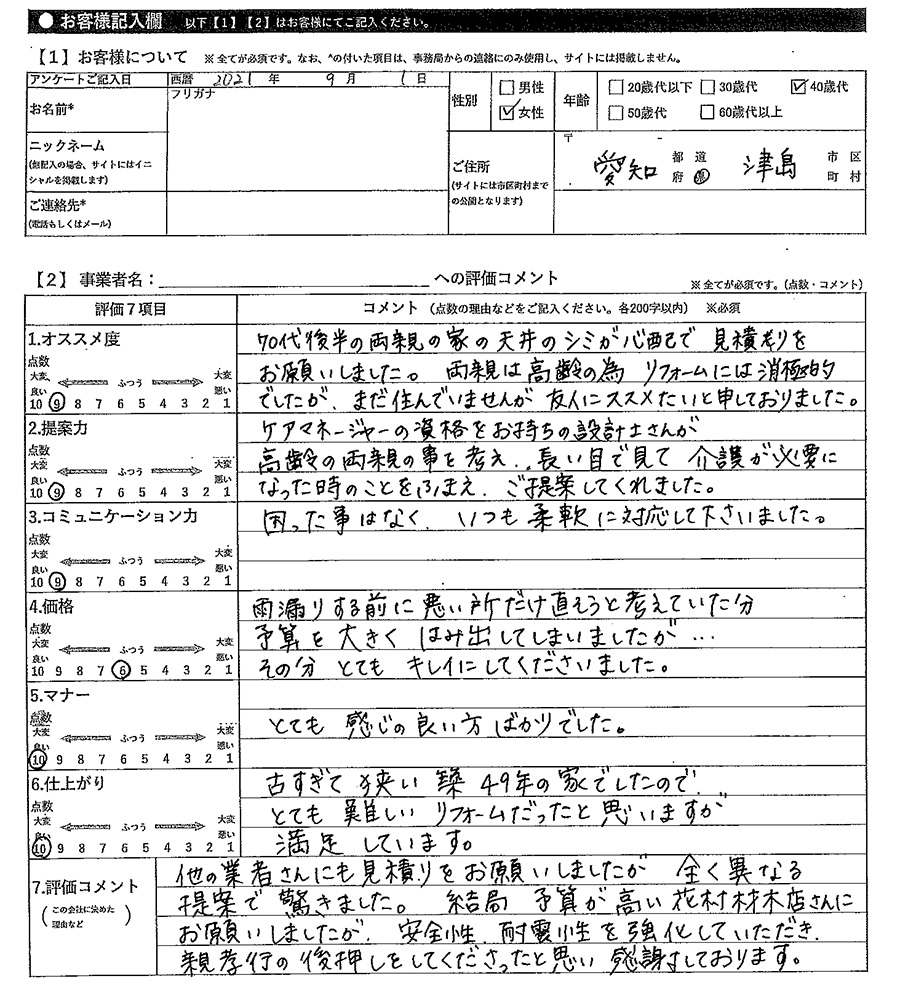 ● お客様記入欄 以下【1】【2】はお客様にてご記入ください。
【1】お客様について ※全てが必須です。なお、*の付いた項目は、事務局からの連絡にのみ使用し、サイトには掲載しません。
アンケートご記入日 西暦 2021 年 9 月 1 日
お名前* フリガナ
性別 □男性 ☑女性
年齢 □20歳代以下 □30歳代 ☑40歳代
□50歳代 □60歳代以上
ニックネーム
(無記入の場合、サイトにはイニ
シャルを掲載します)
ご連絡先*
(電話もしくはメール)
ご住所
(サイトには市区町村まで
の公開となります)
〒 -
愛知 都道府県 津島 市区町村
【2】事業者名: への評価コメント ※全てが必須です。(点数・コメント)
評価7項目 コメント (点数の理由などをご記入ください。各200字以内) ※必須
1.オススメ度
点数
大変良い ふつう 大変悪い
10 9 8 7 6 5 4 3 2 1
70代後半の両親の家の天井のシミが心配で 見積もりを
お願いしました。 両親は高齢の為 リフォームには消極的
でしたが、まだ住んでいませんが 友人にススメたいと申しておりました。
2.提案力
点数
大変良い ふつう 大変悪い
10 9 8 7 6 5 4 3 2 1
ケアマネージャーの資格をお持ちの設計士さんが
高齢の両親の事を考え、長い目で見て 介護が必要に
なった時のことをふまえ、ご提案してくれました。
3.コミュニケーション力
点数
大変良い ふつう 大変悪い
10 9 8 7 6 5 4 3 2 1
困った事はなく、いつも柔軟に対応して下さいました。
4.価格
点数
大変良い ふつう 大変悪い
10 9 8 7 6 5 4 3 2 1
雨漏りする前に悪い所だけ直そうと考えていた分
予算を大きく はみ出してしまいましたが…
その分 とても キレイにしてくださいました。
5.マナー
点数
大変良い ふつう 大変悪い
10 9 8 7 6 5 4 3 2 1
とても 感じの良い方 ばかりでした。
6.仕上がり
点数
大変良い ふつう 大変悪い
10 9 8 7 6 5 4 3 2 1
古すぎて 狭い 築49年の家でしたので、
とても 難しい リフォームだったと思いますが
満足 しています。
7.評価コメント
(この会社に決めた
理由など)
他の業者さんにも見積りをお願いしましたが 全く異なる
提案で 驚きました。 結局 予算が高い花村材木店さんに
お願いしましたが、安全性、耐震性を強化していただき、
親孝行の後押しをしてくださったと思い 感謝しております。